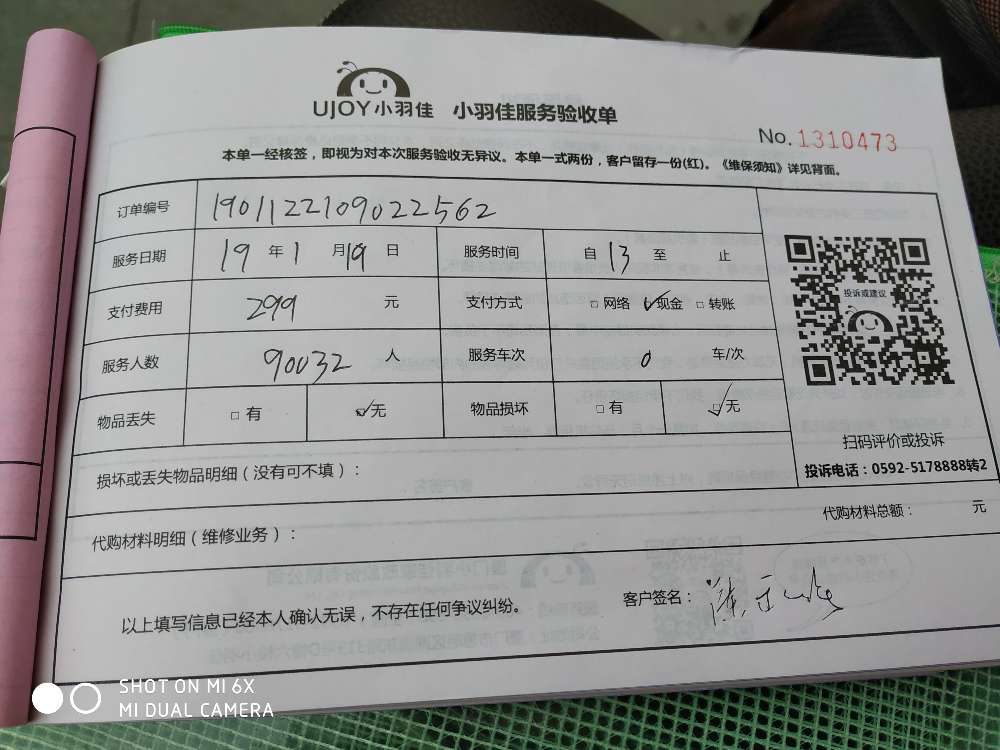 UJOY小羽佳 小羽佳服务验收单
No. 1310473
本单一经核签，即视为对本次服务验收无异议。本单一式两份，客户留存一份(红)。《维保须知》详见背面。
订单编号 1901122109022562
服务日期 19 年 1 月 19 日 服务时间 自 13 至 止
支付费用 299 元 支付方式 □ 网络 ✓现金 □ 转账
服务人数 90032 人 服务车次 0 车/次
物品丢失 □ 有 ✓无 物品损坏 □ 有 ✓无
投诉或建议
扫码评价或投诉
投诉电话：0592-5178888转2
损坏或丢失物品明细（没有可不填）：
代购材料明细（维修业务）： 代购材料总额： 元
以上填写信息已经本人确认无误，不存在任何争议纠纷。 客户签名：
SHOT ON MI 6X
MI DUAL CAMERA